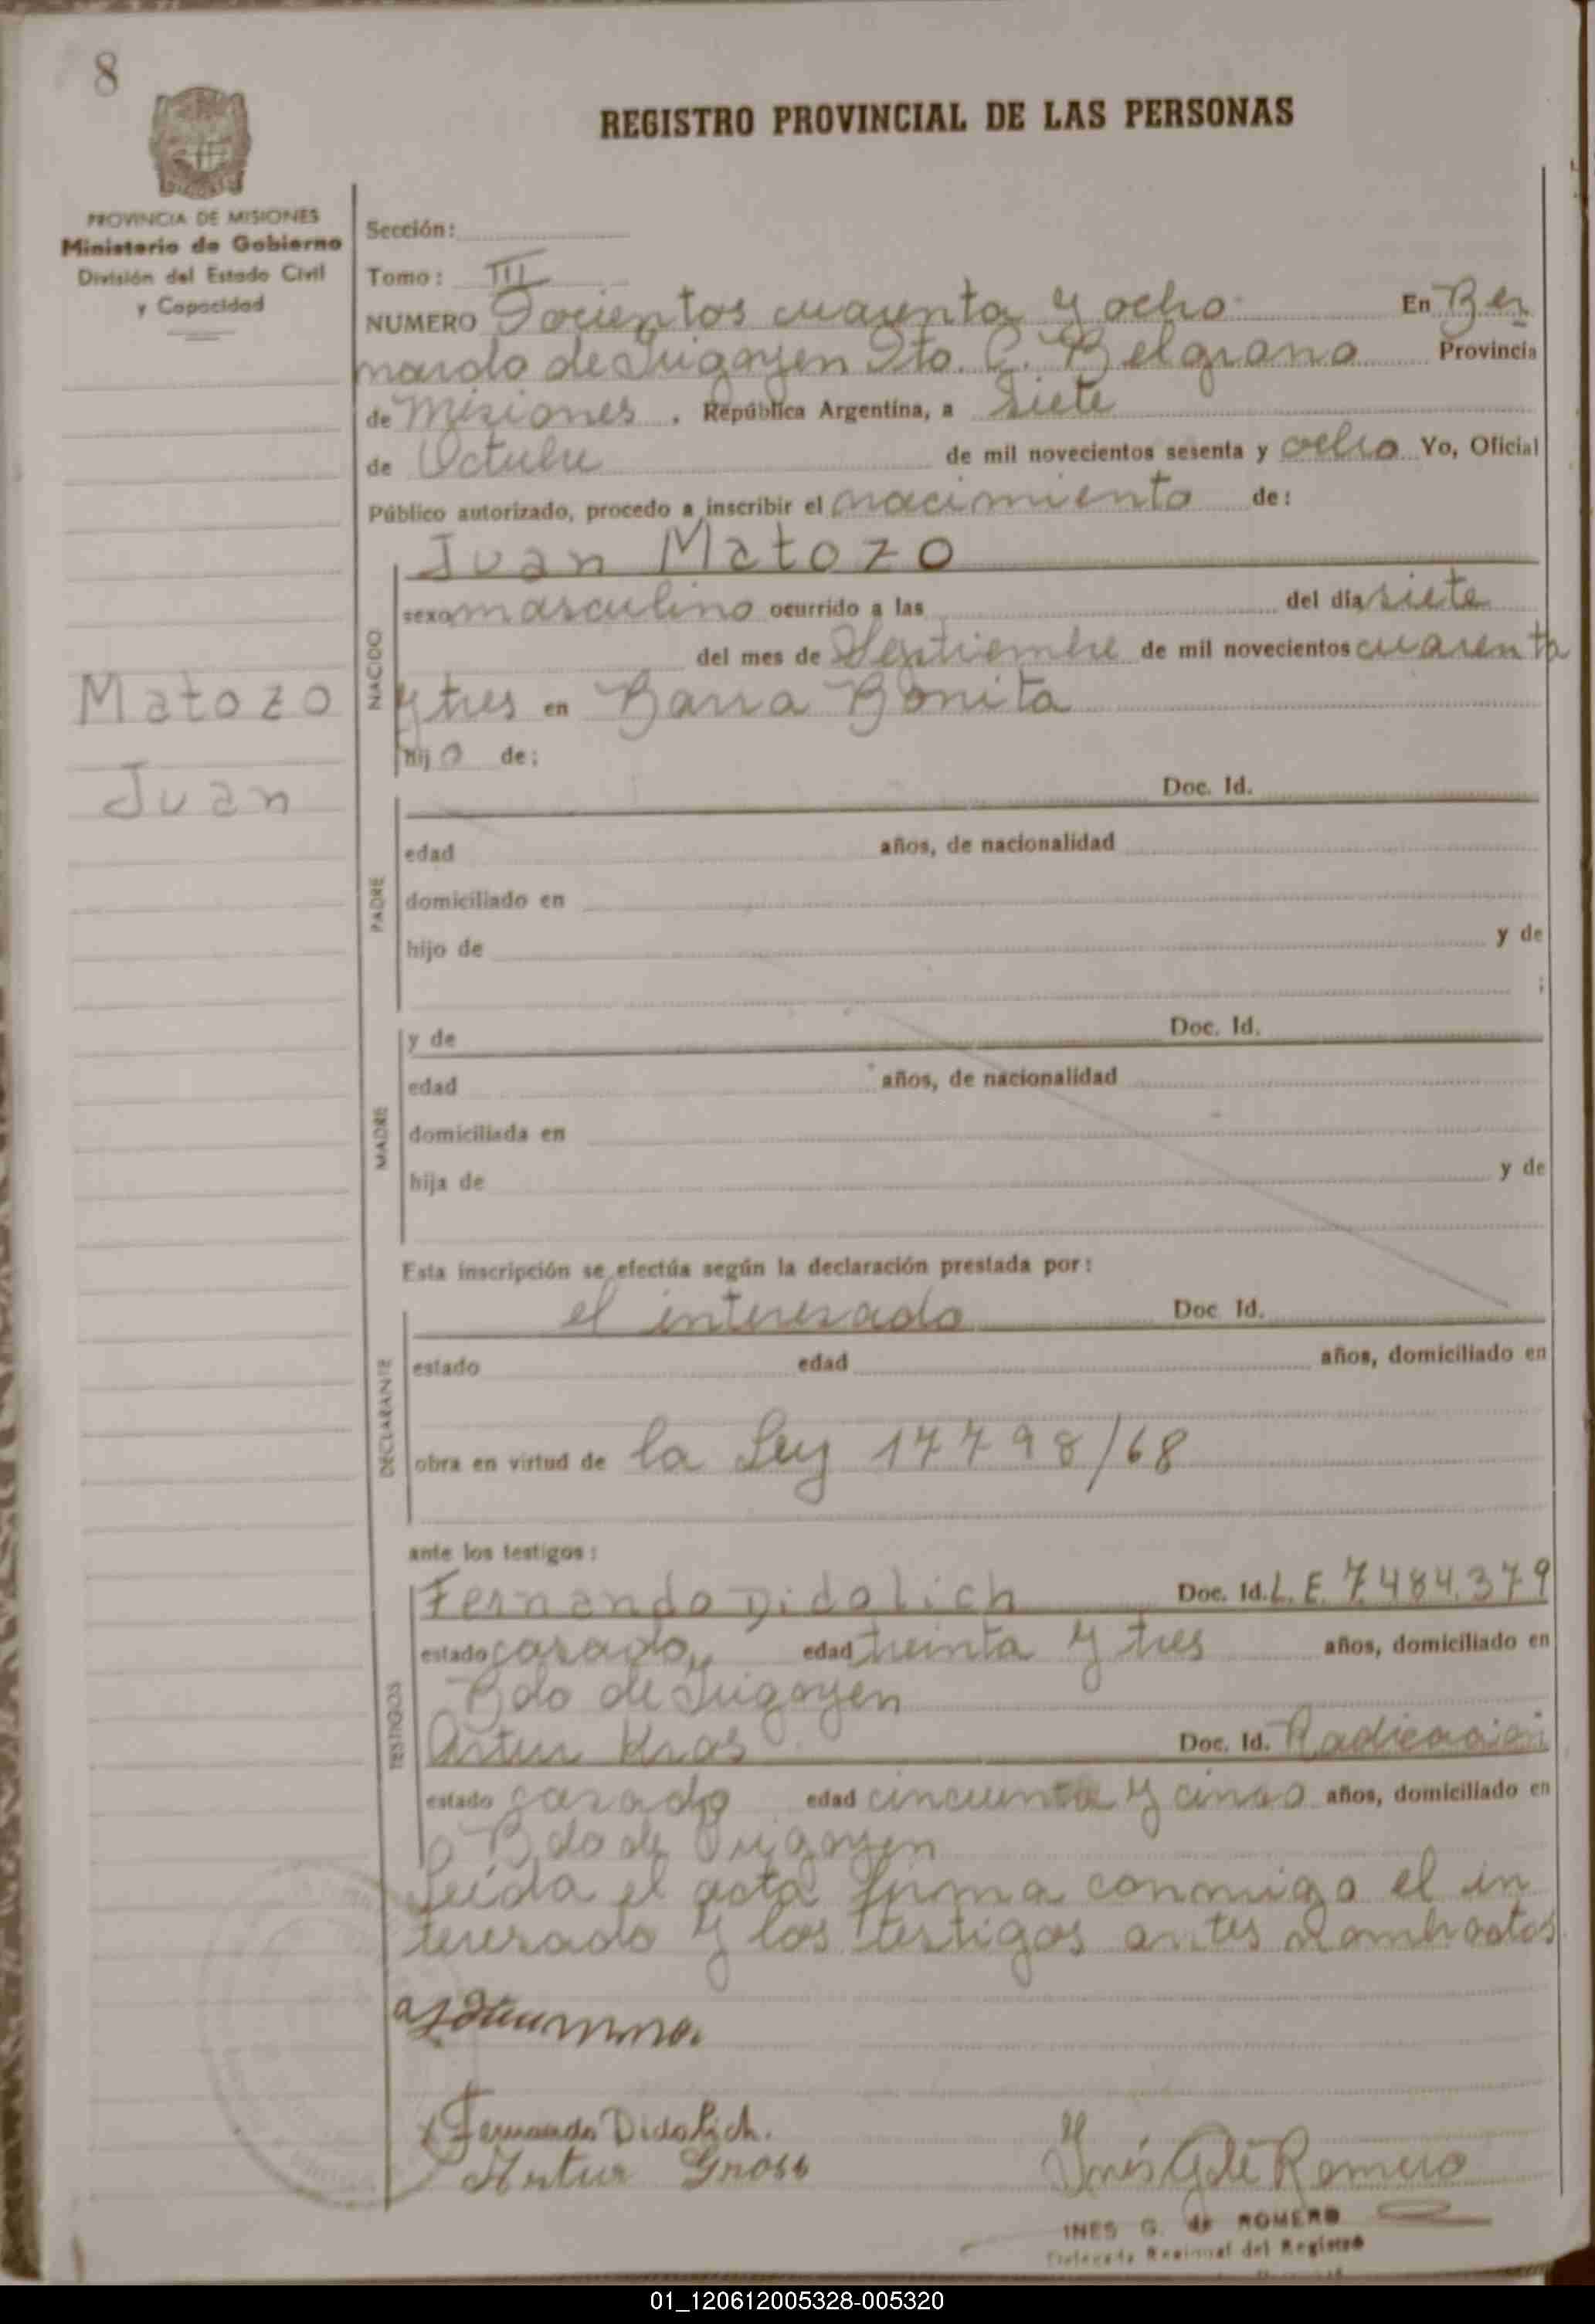 8
REGISTRO PROVINCIAL DE LAS PERSONAS
PROVINCIA DE MISIONES
Ministerio de Gobierno
División del Estado Civil
y Capacidad
Sección:
Tomo: III
NUMERO Docientos cuarenta y ocho En Ber
nardo de Irigoyen Dto. G. Belgrano Provincia
de Misiones. República Argentina, a siete
de Octubre de mil novecientos sesenta y ocho Yo, Oficial
Público autorizado, procedo a inscribir el nacimiento de:
Juan Matozo
sexo masculino ocurrido a las del día siete
del mes de Septiembre de mil novecientos cuarenta
y tres en Barra Bonita
hijo de:
NACIDO
Matozo
Juan
Doc. Id.
edad años, de nacionalidad
domiciliado en
hijo de y de
;
PADRE
y de Doc. Id.
edad años, de nacionalidad
domiciliada en
hija de y de
MADRE
Esta inscripción se efectúa según la declaración prestada por:
el interesado Doc. Id.
estado edad años, domiciliado en
obra en virtud de la Ley 17798/68
DECLARANTE
ante los testigos:
Fernando Didolich Doc. Id. L. E. 7.484.379
estado casado, edad treinta y tres años, domiciliado en
Bdo de Irigoyen
Artur Kros Doc. Id. Radicación
estado casado edad cincuenta y cinco años, domiciliado en
Bdo de Irigoyen
TESTIGOS
Leída el acta firma conmigo el in
teresado y los testigos antes nombrados
Fernando Didolich.
Artur Gross
Inés G de Romero
INES G. de ROMERO
Delegada Regional del Registro
01_120612005328-005320